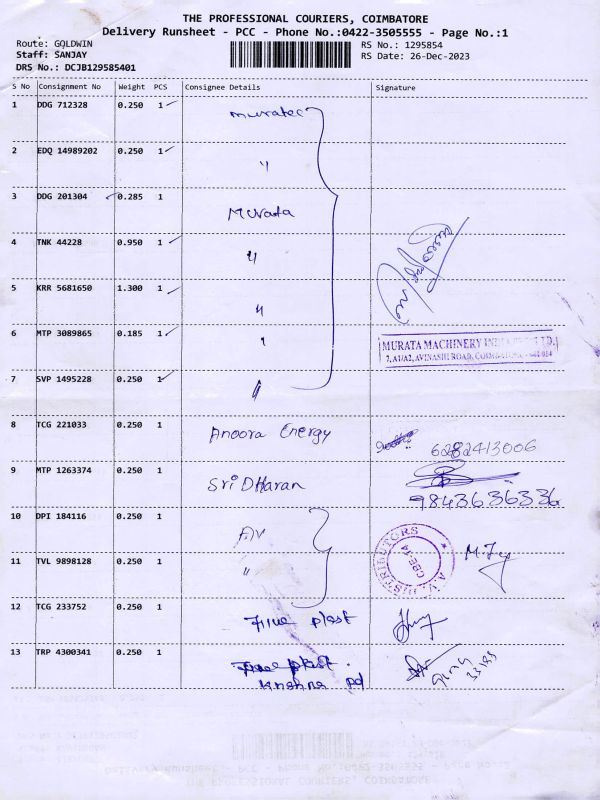 THE PROFESSIONAL COURIERS, COIMBATORE
Delivery Runsheet - PCC - Phone No.:0422-3505555 - Page No.:1
Route: GOLDWIN
RS No.: 1295854
Staff: SANJAY
RS Date: 26-Dec-2023
DRS No.: DCJB129585401
S No Consignment No Weight PCS Consignee Details Signature
1 DDG 712328 0.250 1 muratec
2 EDQ 14989202 0.250 1 "
3 DDG 201304 0.285 1 Murata
4 TNK 44228 0.950 1 "
5 KRR 5681650 1.300 1 "
6 MTP 3089865 0.185 1 "
MURATA MACHINERY INDIA PVT LTD.
7, A1/A2, AVINASHI ROAD, COIMBATORE - 641 014
7 SVP 1495228 0.250 1 "
8 TCG 221033 0.250 1 Anoora Energy 6282413006
9 MTP 1263374 0.250 1 Sri Dharan 9843636336
10 DPI 184116 0.250 1 AV
A.V. DISTRIBUTORS
CBE-14
11 TVL 9898128 0.250 1 "
12 TCG 233752 0.250 1 Fine plast
13 TRP 4300341 0.250 1 Fine plast.
Krishna pd